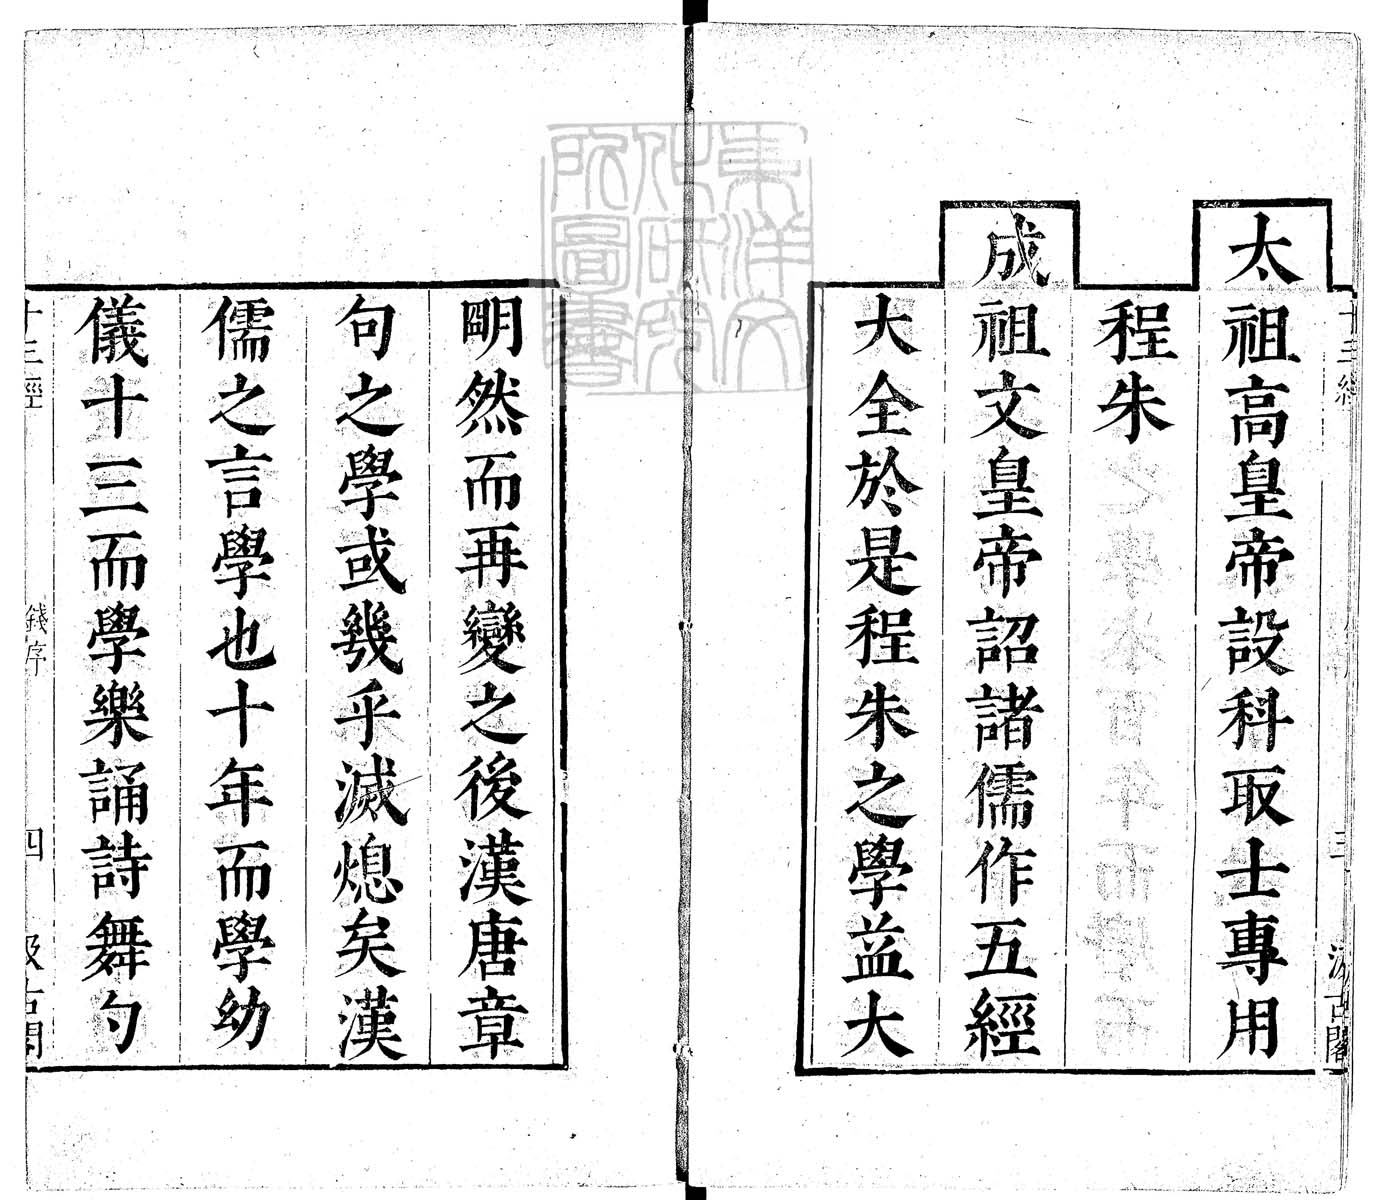 太祖高皇帝設科取士專用
程朱
成祖文皇帝詔諸儒作五經
大全於是程朱之學益大
朙然而再變之後漢唐章
句之學或幾乎滅熄矣漢
儒之言學也十年而學幼
儀十三而學樂誦詩舞勺
十三經
錢序
四
汲古閣
東洋文
化研究
所圖書